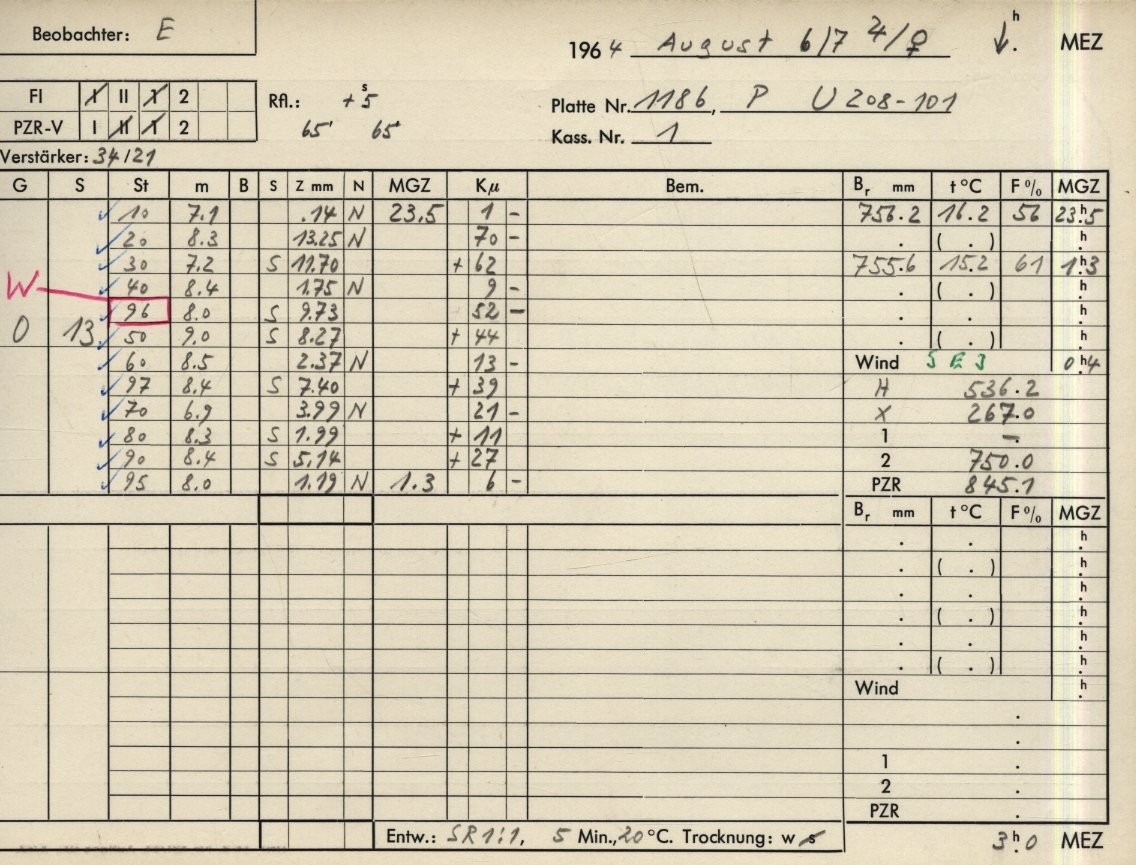 Beobachter: E
1964 August 6/7 ♃/♀ ↓ h . MEZ
FI I II 1 2 Rfl.: + 5 s
PZR-V I II 1 2 65' 65'
Platte Nr. 1186, P U 208-101
Kass. Nr. 1
Verstärker: 34/21
G S St m B S Z mm N MGZ Kμ Bem. Br mm t °C F % MGZ
10 7.1 .14 N 23.5 1 - 756.2 16.2 56 23.h5
20 8.3 13.25 N 70 - . ( . ) h.
30 7.2 S 11.70 + 62 755.6 15.2 61 1.h3
W 40 8.4 1.75 N 9 - . ( . ) h.
96 8.0 S 9.73 52 - . . h.
0 13 50 9.0 S 8.27 + 44 . ( . ) h.
60 8.5 2.37 N 13 - Wind S E 3 0.h4
97 8.4 S 7.40 + 39 H 536.2
70 6.9 3.99 N 21 - X 267.0
80 8.3 S 1.99 + 11 1 -.
90 8.4 S 5.14 + 27 2 750.0
95 8.0 1.19 N 1.3 6 - PZR 845.1
Br mm t °C F % MGZ
. . h.
. ( . ) h.
. . h.
. ( . ) h.
. . h.
. ( . ) h.
Wind h.
.
.
1 .
2 .
PZR .
Entw.: SR 1:1, 5 Min., 20 °C. Trocknung: w 3.h0 MEZ